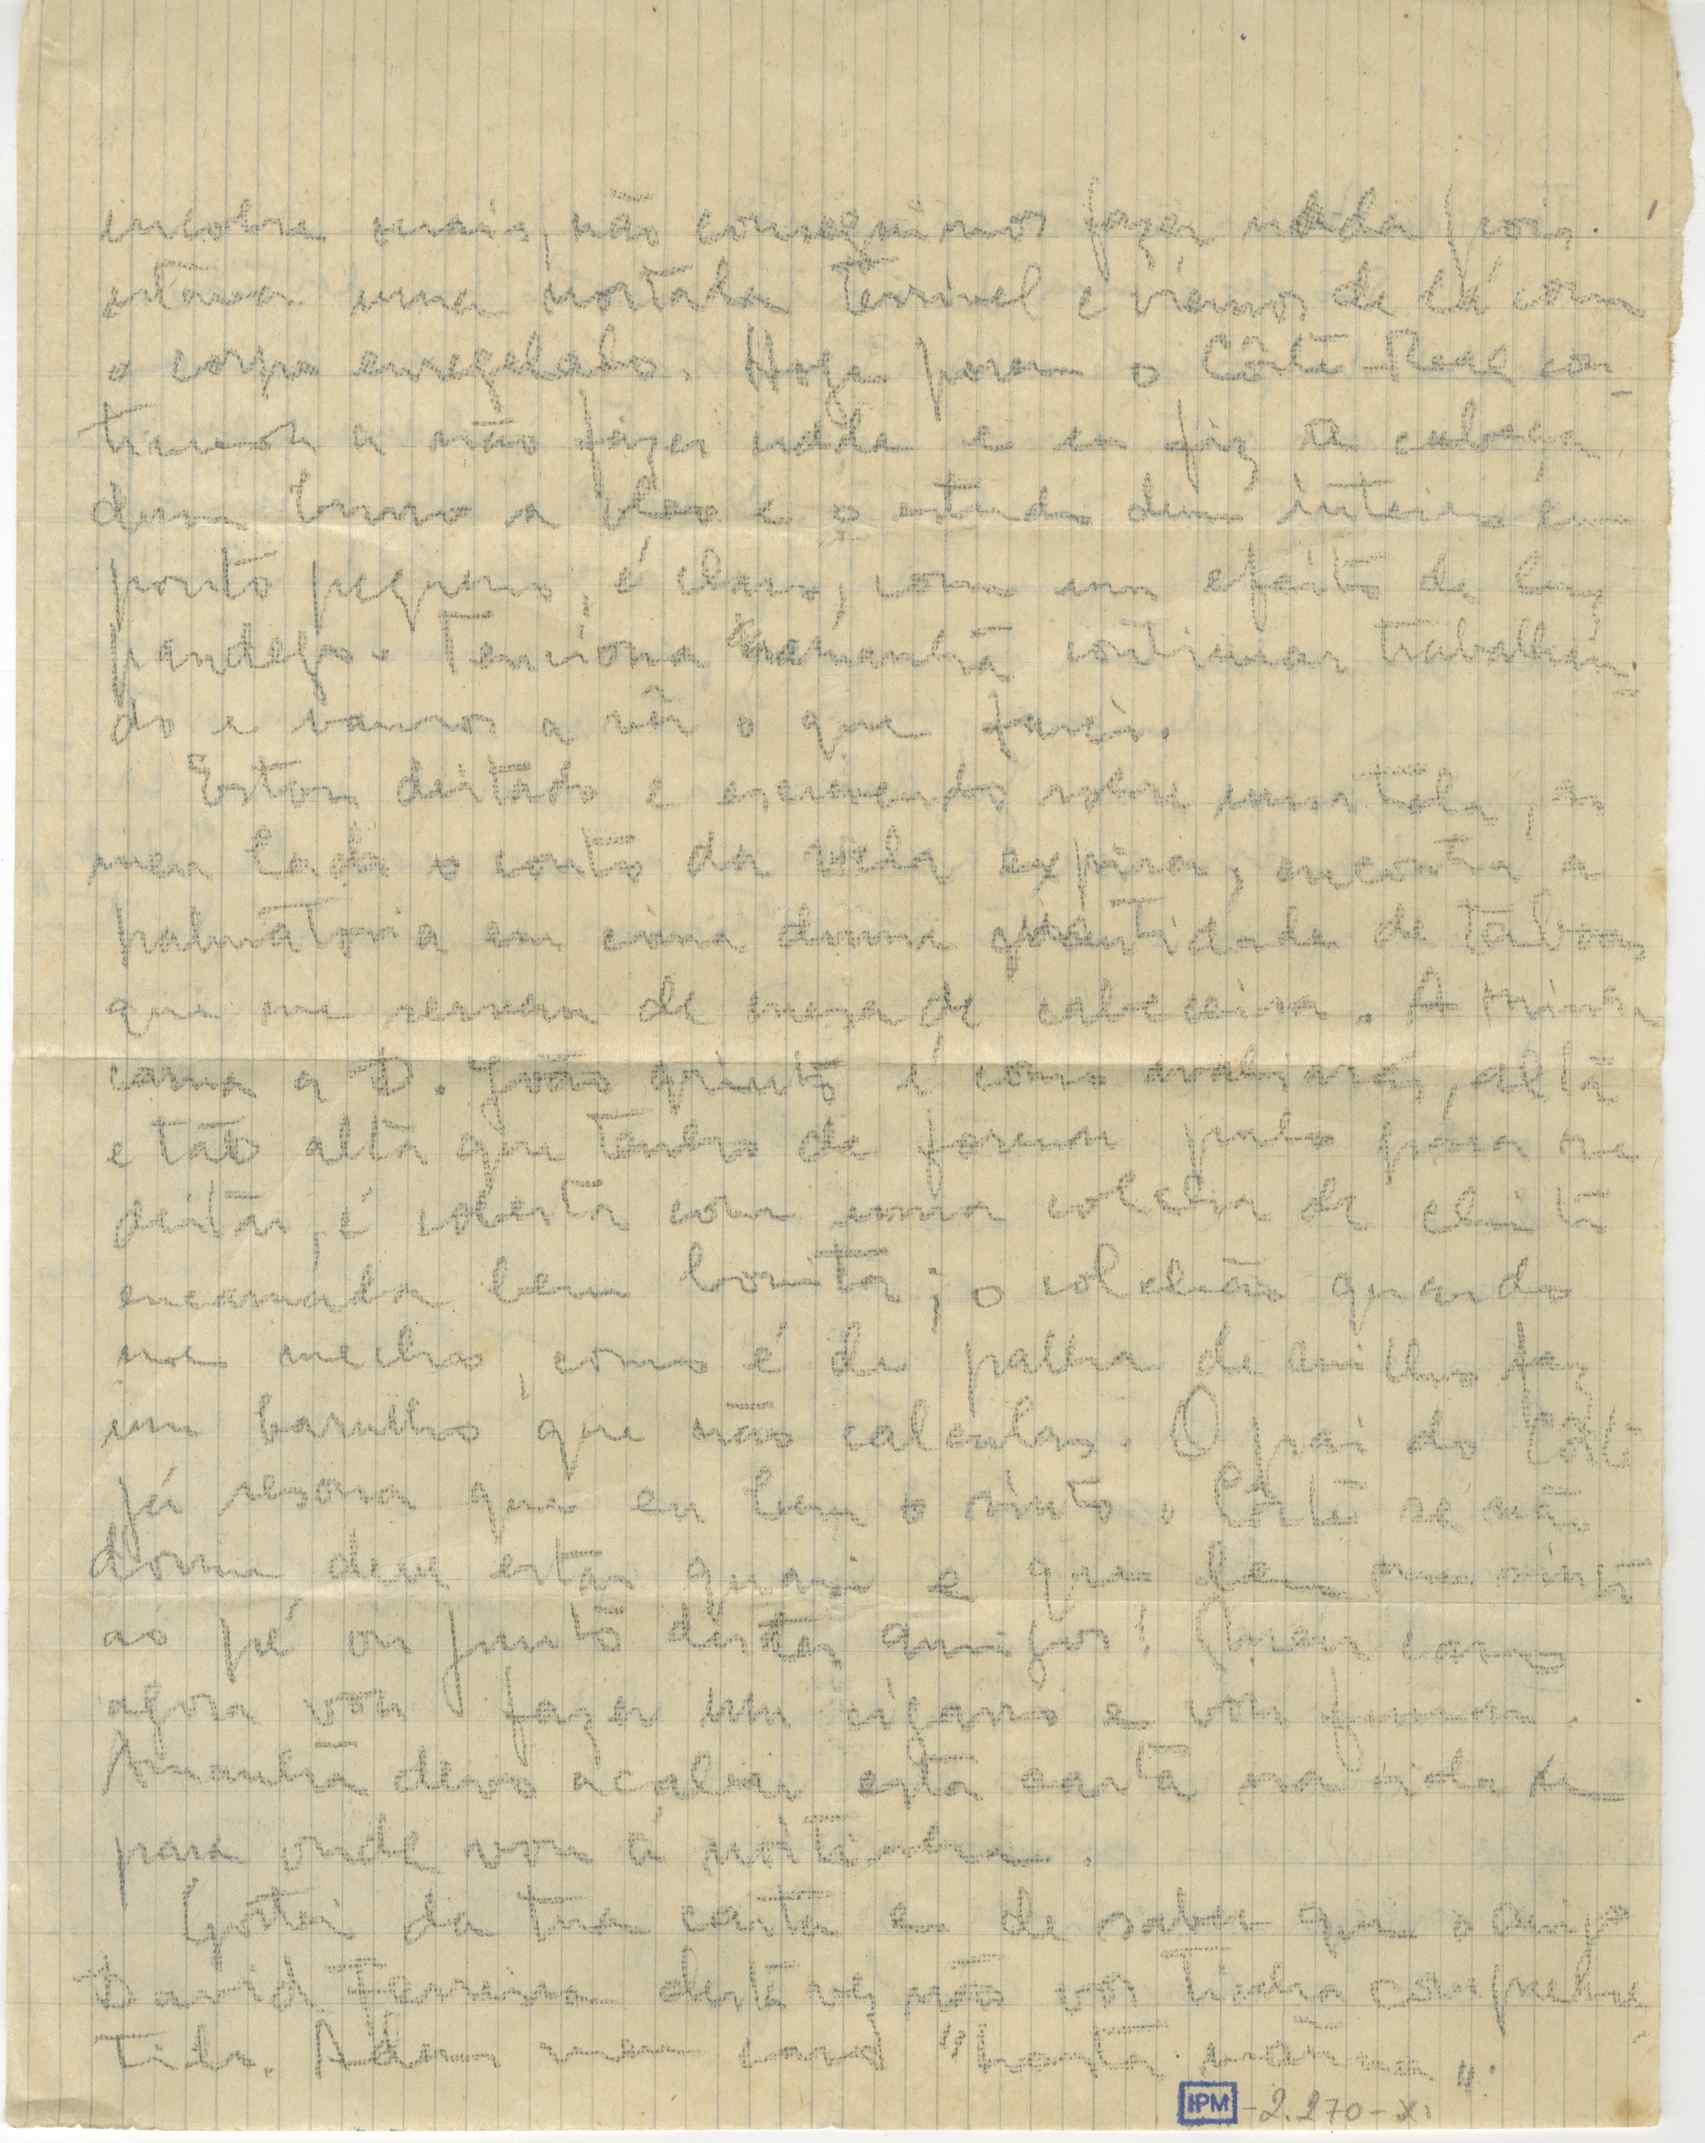 mais, não conseguimos fazer nada pois
estava uma nortada terrivel e viemos de lá com
o corpo enregelado. Hoje porem o Côrte-Real con
tinuou a não fazer nada e eu fiz a cabeça
dum burro a oleo e o estudo dum inteiro em
ponto pequeno, é claro, com um efeito de luz
pandego. Tenciona amanhã continuar trabalhan-
do e vamos a vêr o que farei.
Estou deitado e escrevendo sobre uma téla, ao
meu lado o couto da vela expira, encontra a
palmatoria em cima duma quantidade de taboas
que me servem de meza de cabeceira. A minha
cama a D. João quinto é como avaliarás, alta
e tão alta que tenho de formar pulo para me
deitar, é coberta com uma colcha de chita
encarnada bem bonita; o colchão quando
me mecho, como é de palha de milho faz
um barulho que não calculas. O pai do Côrte
já resona que eu bem o sinto o Côrte se não
dorme deve estar quasi e que bem me sinto
ao pé ou junto destes amigos! Meu caro
agora vou fazer um cigarro e vou fumar.
Amanhã devo acabar esta carta na vida de
para onde vou á noitinha.
Gostei da tua carta e de saber que o amigo
David Ferreira desta vez não vos tinha comprome
tido. Adeus meu caro "hasta mañana".
IPM -2.270-XI